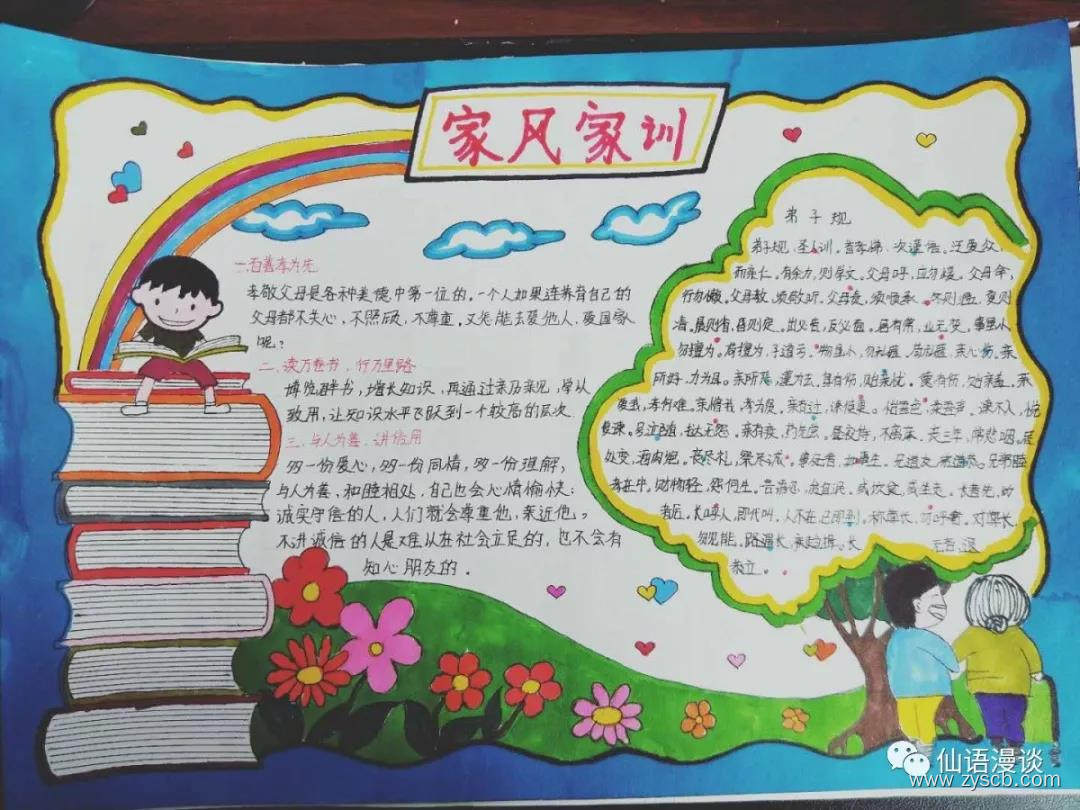 家风家训
一.百善孝为先
孝敬父母是各种美德中第一位的。一个人如果连养育自己的
父母都不关心,不照顾,不尊重。又怎能去爱他人,爱国家
呢?
二、读万卷书,行万里路
博览群书,增长知识,再通过亲历亲见,学以
致用,让知识水平飞跃到一个较高的层次
三、与人为善、讲信用
多一份爱心,多一份同情,多一份理解,
与人为善,和睦相处,自己也会心情愉快;
诚实守信的人,人们就会尊重他,亲近他。
不讲诚信的人是难以在社会立足的,也不会有
知心朋友的。
弟子规
弟子规,圣人训。首孝悌,次谨信。泛爱众,
而亲仁。有余力,则学文。父母呼,应勿缓。父母命,
行勿懒。父母教,须敬听。父母责,须顺承。冬则温,夏则
清。晨则省,昏则定。出必告,反必面。居有常,业无变。事虽小
勿擅为。苟擅为,子道亏。物虽小,勿私藏。苟私藏,亲心伤。亲
所好,力为具。亲所恶,谨为去。身有伤,贻亲忧。德有伤,贻亲羞。亲
爱我,孝何难。亲憎我,孝方贤。亲有过,谏使更。怡吾色,柔吾声。谏不入,悦
复谏。号泣随,挞无怨。亲有疾,药先尝。昼夜侍,不离床。丧三年,常悲咽。居
处变,酒肉绝。丧尽礼,祭尽诚。事死者,如事生。兄道友,弟道恭。兄弟睦
孝在中。财物轻,怨何生。言语忍,忿自泯。或饮食,或坐走。长者先,幼
者后。长呼人,即代叫。人不在,己即到。称尊长,勿呼名。对尊长,
勿见能。路遇长,疾趋揖。长 无言,退
恭立。
仙语漫谈
www.zyscb.com